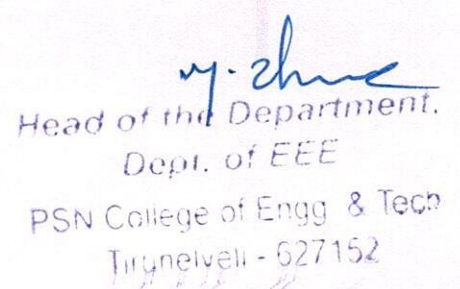 Head of the Department.
Dept. of EEE
PSN College of Engg & Tech
Tirunelveli - 627152